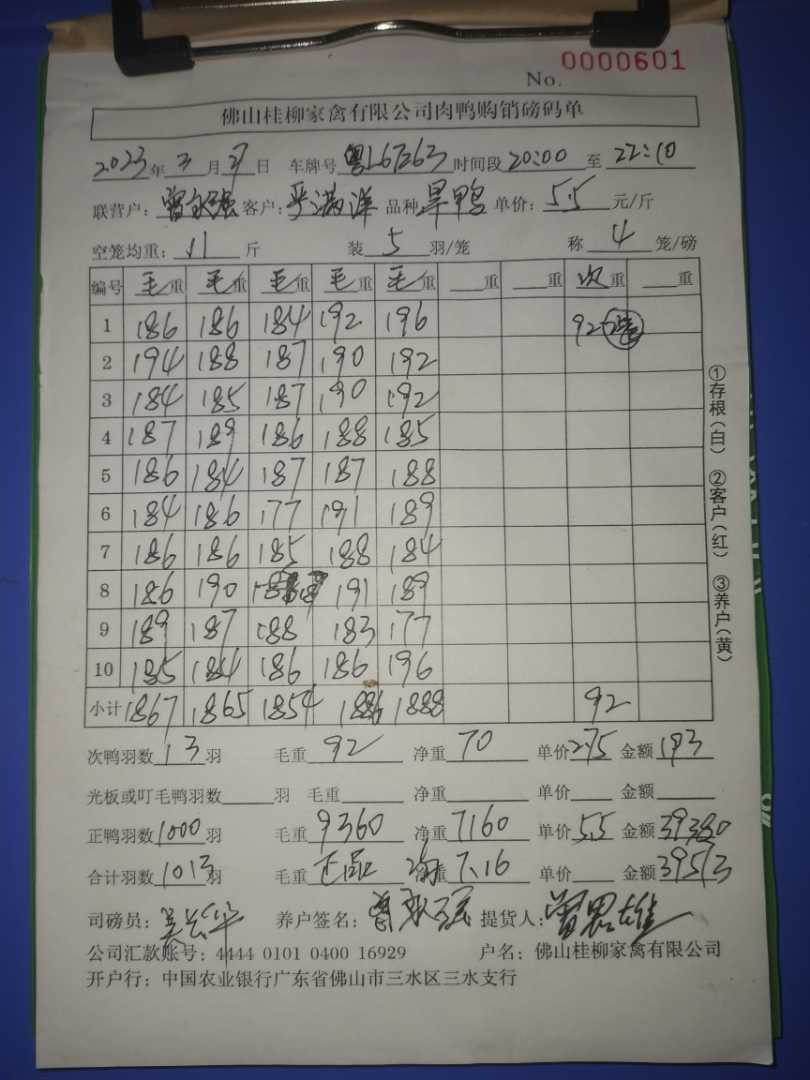 No. 0000601
佛山桂柳家禽有限公司肉鸭购销磅码单
2023年3月27日 车牌号 时间段20:00至22:10
联营户：曾永强 客户：严满洋 品种 旱鸭 单价：5.5元/斤
空笼均重：11斤 装5羽/笼 称4笼/磅
编号 毛重 毛重 毛重 毛重 毛重 重 重 次重 重
1 186 186 184 192 196 92
2 194 188 187 190 192
3 184 185 187 190 192
4 187 189 186 188 185
5 186 184 187 187 188
6 184 186 177 191 189
7 186 186 185 188 184
8 186 190 191 189
9 189 187 188 183 177
10 185 184 186 186 196
小计 1867 1865 1854 1886 1888 92
次鸭羽数13羽 毛重92 净重70 单价2.75 金额193
光板或叮毛鸭羽数 羽 毛重 净重 单价 金额
正鸭羽数1000羽 毛重9360 净重7160 单价5.5 金额39380
合计羽数1013羽 毛重正品 净重7.16 单价 金额39513
司磅员： 养户签名：曾永强 提货人：
公司汇款账号：4444 0101 0400 16929 户名：佛山桂柳家禽有限公司
开户行：中国农业银行广东省佛山市三水区三水支行
①存根（白） ②客户（红） ③养户（黄）